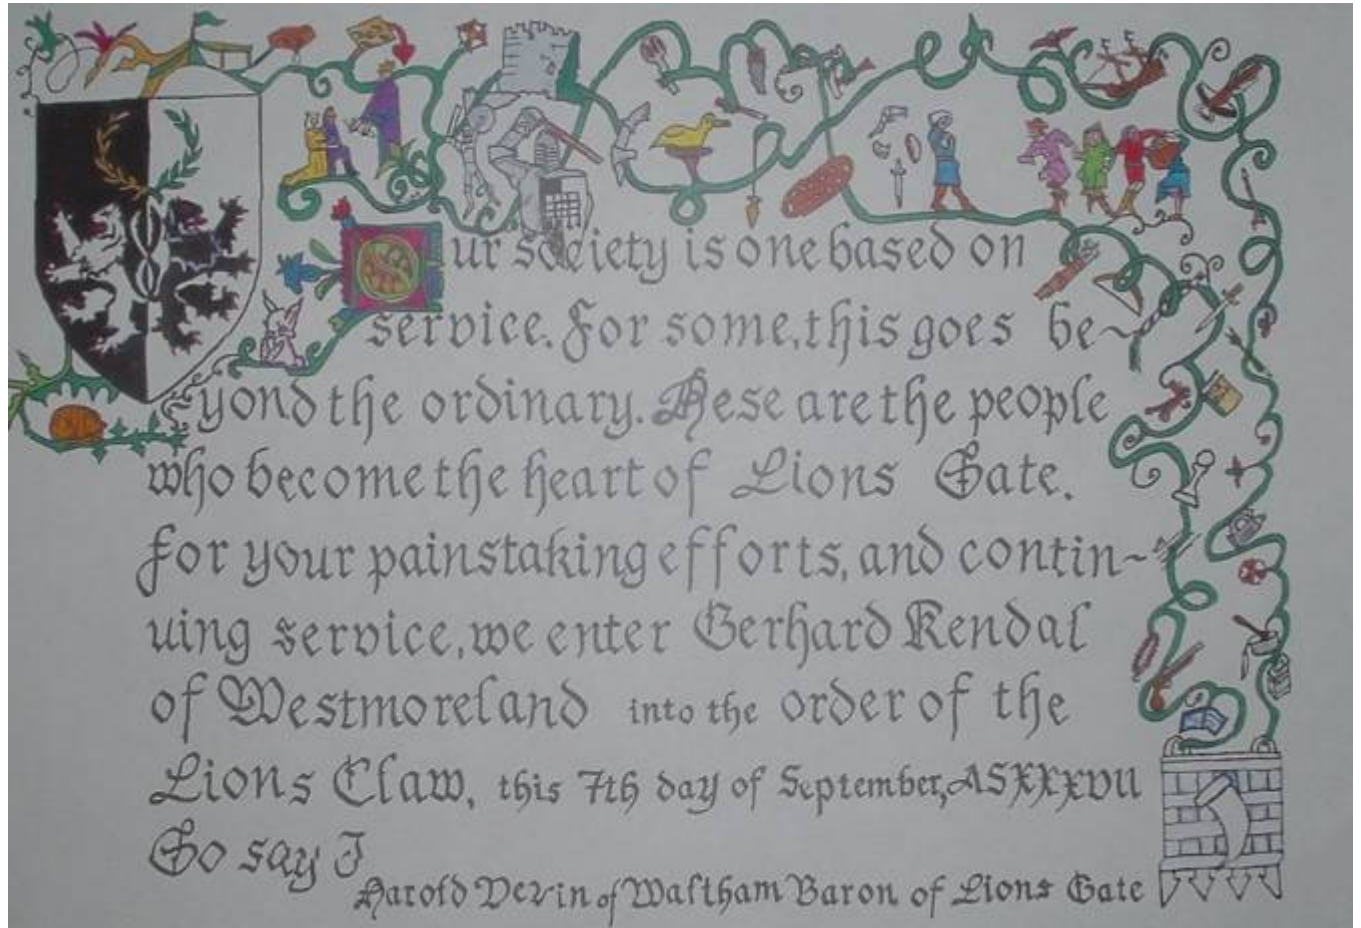 Our society is one based on
service. For some, this goes be~
yond the ordinary. These are the people
who become the heart of Lions Gate.
For your painstaking efforts, and contin~
uing service, we enter Gerhard Kendal
of Westmoreland into the order of the
Lions Claw, this 7th day of September, AS XXXVII
So say I
Harold Devin of Waltham Baron of Lions Gate